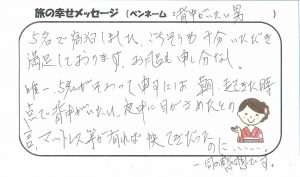 旅の幸せメッセージ (ペンネーム 背中がいたい男 )
5名で宿泊しました、ごちそうも十分いただき
満足しております。お風呂も申し分なし。
唯一、5名がそろって申すには 朝、起きた時
点で背中がいたい。夜中に目がさめたとの
言、マットレス等が有れば快てきだった
のに……
一同の感想です。